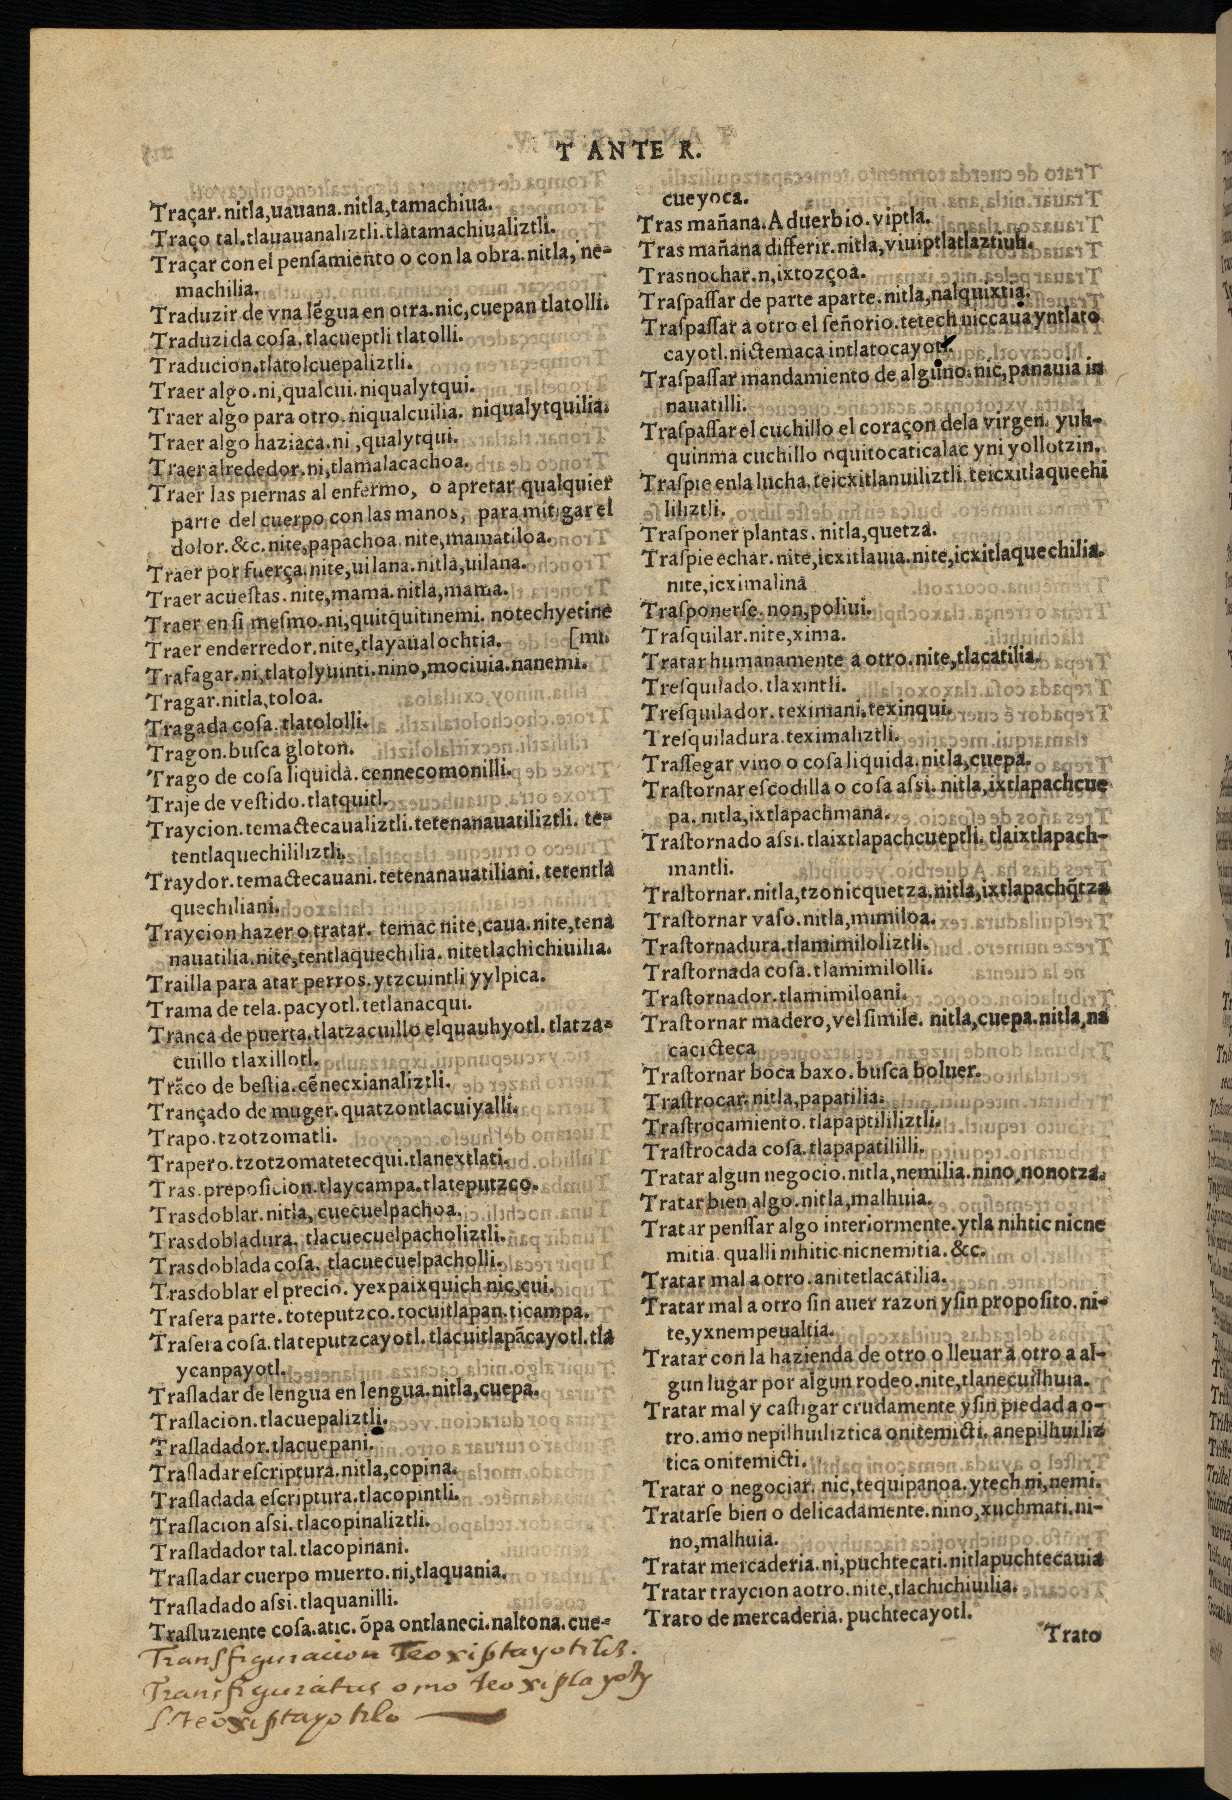 T ANTE R.
Traçar. nitla,uauana.nitla,tamachiua.
Traço tal.tlauauanaliztli.tlatamachiualiztli.
Traçar con el penſamiento o con la obra.nitla, ne-
machilia.
Traduzir de vna lẽgua en otra.nic,cuepan tlatolli.
Traduzida coſa.tlacueptli tlatolli.
Traducion.tlatolcuepaliztli.
Traer algo.ni,qualcui.niqualytqui.
Traer algo para otro.niqualcuilia. niqualytquilia.
Traer algo haziaca.ni,qualytqui.
Traer alrededor.ni,tlamalacachoa.
Traer las piernas al enfermo, o apretar qualquier
parte del cuerpo con las manos, para mitigar el
dolor.&c.nite,papachoa.nite,mamatiloa.
Traer por fuerça.nite,uilana.nitla,uilana.
Traer acueſtas.nite,mama.nitla,mama.
Traer en ſi meſmo.ni,quitquitinemi. notechyetine
Traer enderredor.nite,tlayaualochtia. [mi.
Trafagar.ni,tlatolyuinti.nino,mociuia.nanemi.
Tragar.nitla,toloa.
Tragada coſa.tlatololli.
Tragon.buſca gloton.
Trago de coſa liquida.cennecomonilli.
Traje de veſtido.tlatquitl.
Traycion.temactecaualiztli.tetenanauatiliztli. te-
tentlaquechililiztli.
Traydor.temactecauani.tetenanauatiliani. tetentla
quechiliani.
Traycion hazer o tratar. temac nite,caua.nite,tena
nauatilia.nite,tentlaquechilia. nitetlachichiuilia.
Trailla para atar perros.ytzcuintli yylpica.
Trama de tela.pacyotl.tetlanacqui.
Tranca de puerta.tlatzacuillo elquauhyotl. tlatza-
cuillo tlaxillotl.
Trãco de beſtia.cẽnecxianaliztli.
Trançado de muger.quatzontlacuiyalli.
Trapo.tzotzomatli.
Trapero.tzotzomatetecqui.tlanextlati.
Tras.prepoſicion.tlaycampa.tlateputzco.
Trasdoblar.nitla, cuecuelpachoa.
Trasdobladura. tlacuecuelpacholiztli.
Trasdoblada coſa. tlacuecuelpacholli.
Trasdoblar el precio. yexpaixquich nic,cui.
Traſera parte.toteputzco.tocuitlapan.ticampa.
Traſera coſa.tlateputzcayotl.tlacuitlapãcayotl.tla
ycanpayotl.
Traſladar de lengua en lengua.nitla,cuepa.
Traſlacion.tlacuepaliztli.
Traſladador.tlacuepani.
Traſladar eſcriptura.nitla,copina.
Traſladada eſcriptura.tlacopintli.
Traſlacion aſsi.tlacopinaliztli.
Traſladador tal.tlacopinani.
Traſladar cuerpo muerto.ni,tlaquania.
Traſladado aſsi.tlaquanilli.
Traſluziente coſa.atic. õpa ontlaneci.naltona.cue-
Transfiguracion
Transfiguratus omo
cueyoca.
Tras mañana.Aduerbio.viptla.
Tras mañana differir.nitla,viuiptlatlaztiuh.
Trasnochar.n,ixtozçoa.
Traſpaſſar de parte aparte.nitla,nalquixtia.
Traſpaſſar a otro el ſeñorio.tetech niccauayntlato
cayotl.nictemaca intlatocayotl
Traſpaſſar mandamiento de alguno.nic,panauia in
nauatilli.
Traſpaſſar el cuchillo el coraçon dela virgen. yuh-
quinma cuchillo oquitocaticalac yni yollotzin.
Traſpie enla lucha.teicxitlanuiliztli.teicxitlaquechi
liliztli.
Traſponer plantas. nitla,quetza.
Traſpie echar. nite,icxitlauia.nite,icxitlaquechilia.
nite,icximalina
Traſponerſe.non,poliui.
Traſquilar.nite,xima.
Tratar humanamente a otro.nite,tlacatilia.
Treſquilado.tlaxintli.
Treſquilador.teximani.texinqui.
Treſquiladura.teximaliztli.
Traſſegar vino o coſa liquida.nitla,cuepa.
Traſtornar eſcodilla o coſa aſsi. nitla,ixtlapachcue
pa. nitla,ixtlapachmana.
Traſtornado aſsi.tlaixtlapachcueptli. tlaixtlapach-
mantli.
Traſtornar.nitla,tzonicquetza.nitla,ixtlapachq̃tza
Traſtornar vaſo.nitla,mimiloa.
Traſtornadura.tlamimiloliztli.
Traſtornada coſa.tlamimilolli.
Traſtornador.tlamimiloani.
Traſtornar madero,vel ſimile. nitla,cuepa.nitla,na
cacicteca
Traſtornar boca baxo.buſca boluer.
Traſtrocar.nitla,papatilia.
Traſtrocamiento.tlapaptililiztli.
Traſtrocada coſa.tlapapatililli.
Tratar algun negocio.nitla,nemilia.nino,nonotza.
Tratar bien algo.nitla,malhuia.
Tratar penſſar algo interiormente.ytla nihtic nicne
mitia.qualli nihitic nicnemitia.&c.
Tratar mal a otro.anitetlacatilia.
Tratar mal a otro ſin auer razon yſin propoſito.ni-
te,yxnempeualtia.
Tratar con la hazienda de otro o lleuar a otro a al-
gun lugar por algun rodeo.nite,tlanecuilhuia.
Tratar mal y caſtigar crudamente yſin piedad a o-
tro.amo nepilhuiliztica onitemicti. anepilhuiliz
tica onitemicti.
Tratar o negociar. nic,tequipanoa.ytech ni,nemi.
Tratarſe bien o delicadamente.nino,xuchmati.ni-
no,malhuia.
Tratar mercaderia.ni,puchtecati.nitlapuchtecauia
Tratar traycion aotro.nite,tlachichiuilia.
Trato de mercaderia.puchtecayotl.
Trato